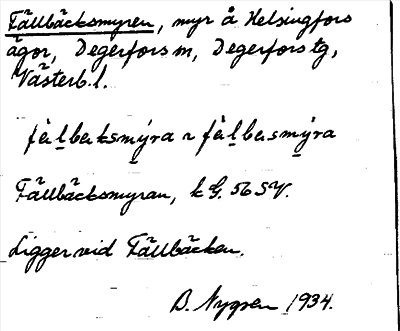 Fällbäcksmyren, myr å Helsingfors
ägor, Degerfors sn, Degerfors tg,
Västerb. l.
fäl̲baksmy̲ra ~ fäl̲basmy̲ra
Fällbäcksmyran, k G. 56 SV.
Ligger vid Fällbäcken.
B. Nygren 1934.